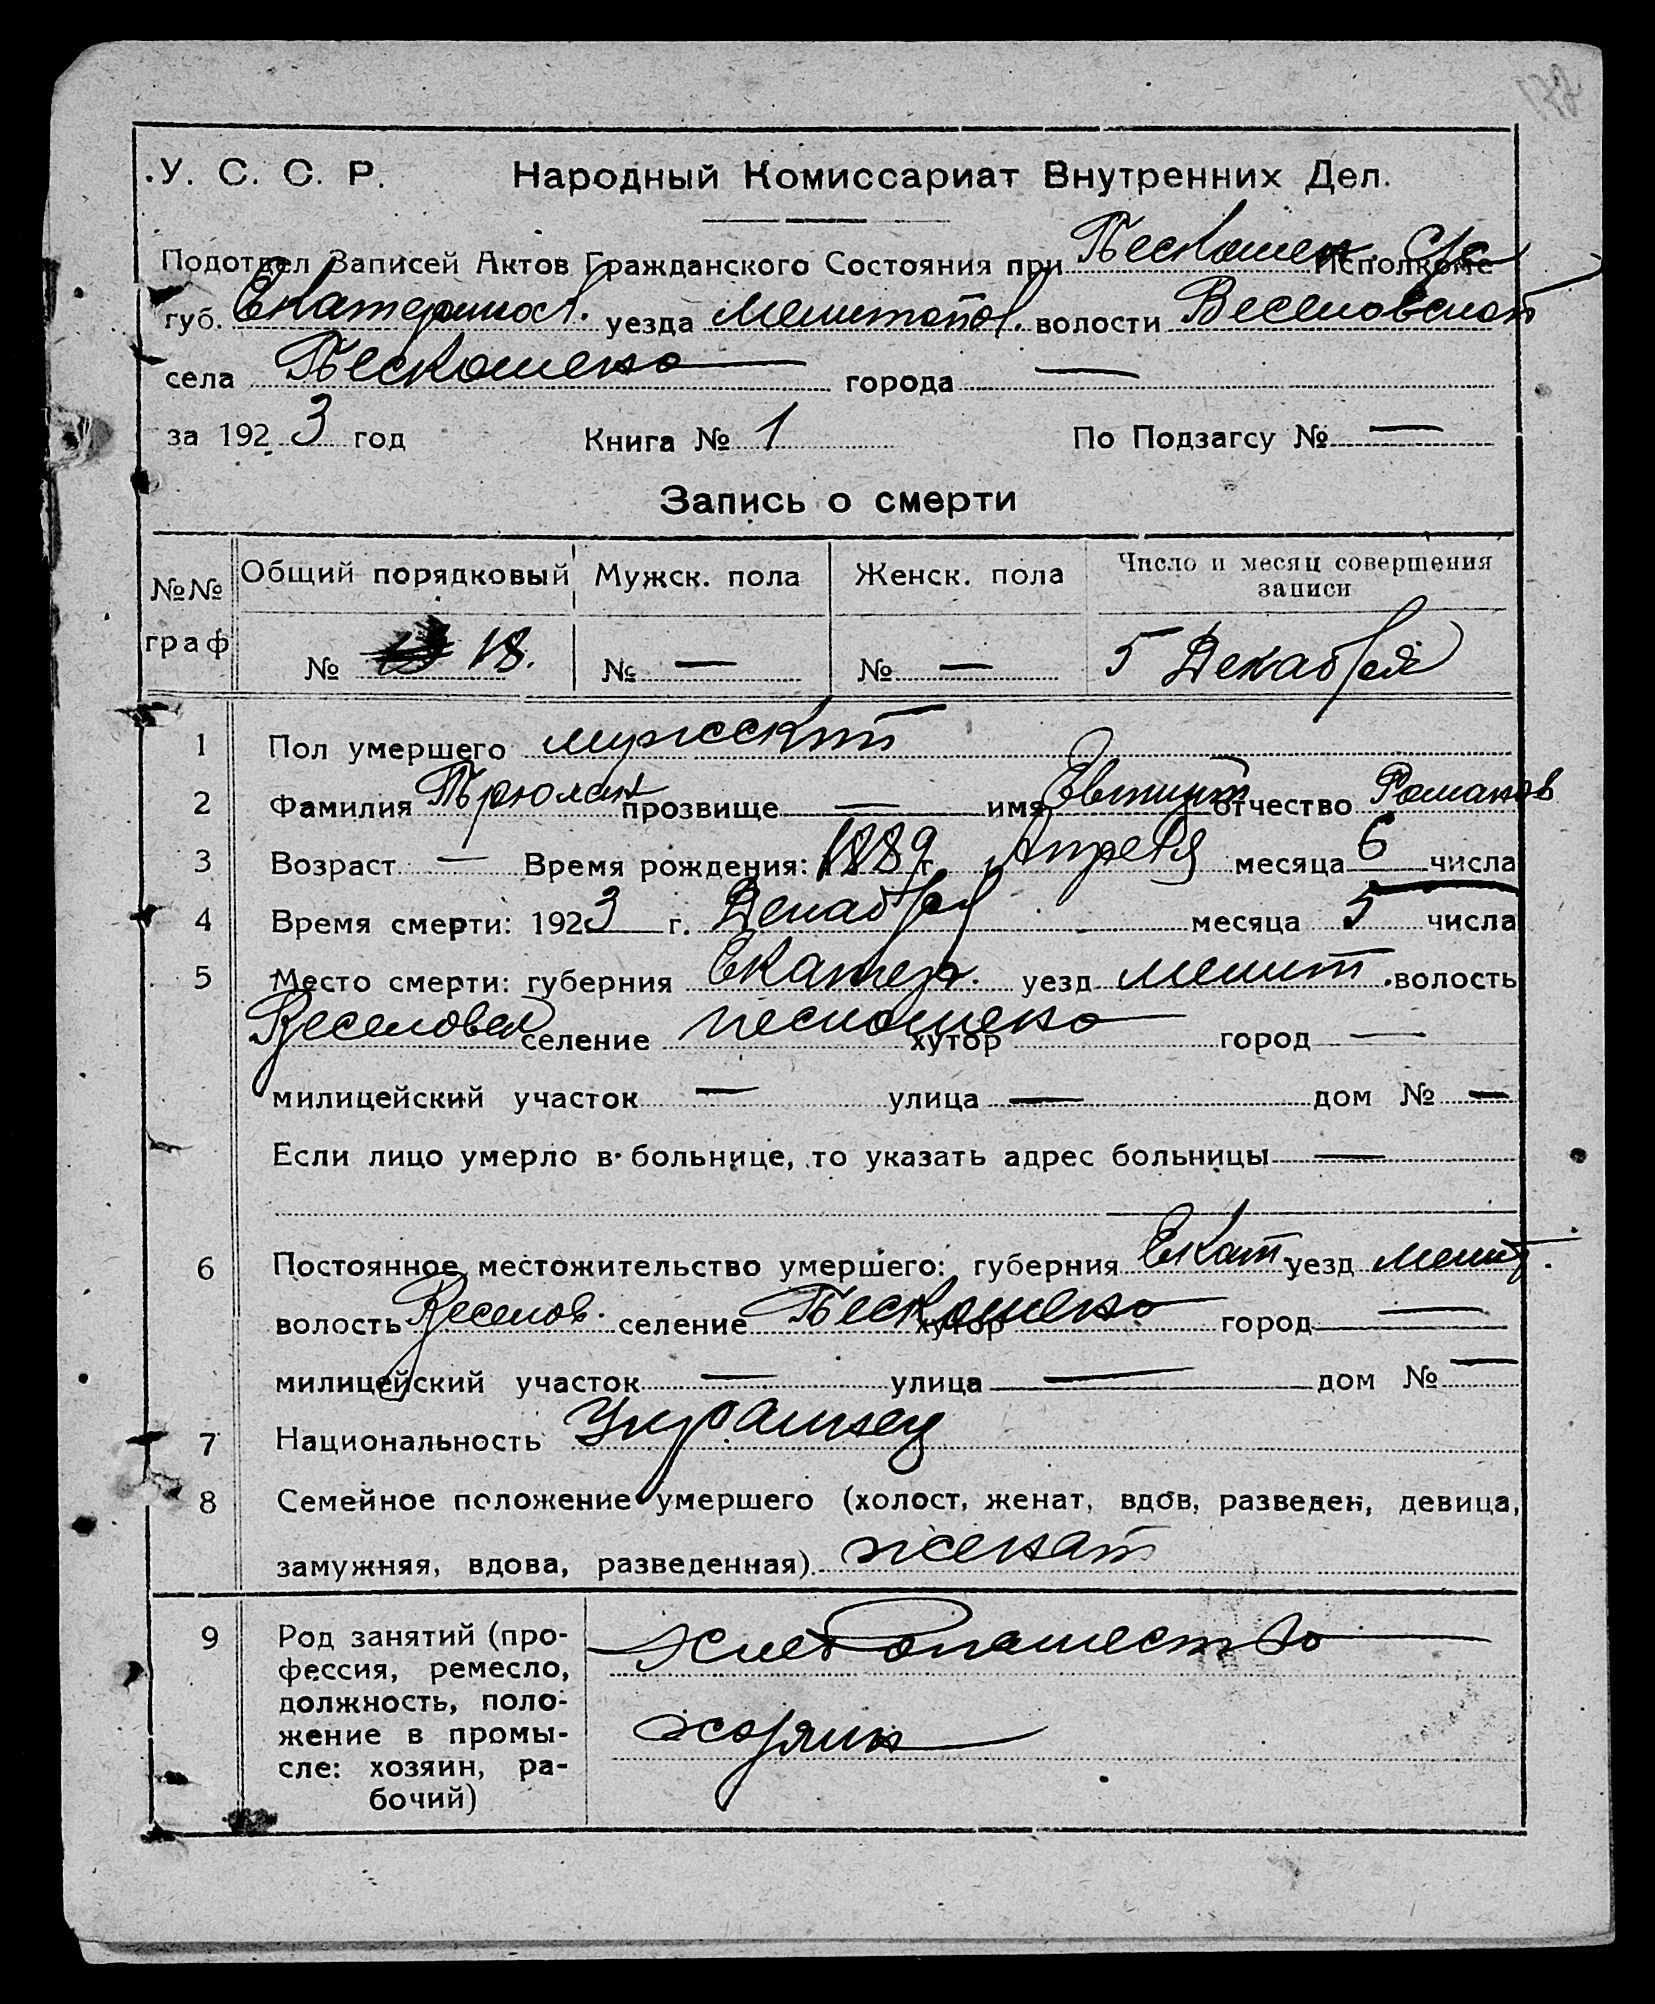 У. С. С. Р. Народный Комиссариат Внутренних Дел.
Подотдел Записей Актов Гражданского Состояния при Исполкоме
губ. Екатеринос. уезда Мелитопол. волости Веселовской
села Пескошено — города —
за 1923 год Книга № 1 По Подзагсу № —
Запись о смерти
№№ граф Общий порядковый Мужск. пола Женск. пола Число и месяц совершения записи
№ 18. № — № — 5 Декабря
1 Пол умершего мужской
2 Фамилия прозвище — имя отчество Романов
3 Возраст — Время рождения: 1889 г. Апреля месяца 6 числа
4 Время смерти: 1923 г. Декабря месяца 5 числа
5 Место смерти: губерния Екатер. уезд Мелит. волость
Веселовск селение Пескошено хутор город —
милицейский участок — улица — дом № —
Если лицо умерло в больнице, то указать адрес больницы —
6 Постоянное местожительство умершего: губерния Екат уезд Мелит.
волость Веселов. селение Пескошено хутор город —
милицейский участок — улица — дом № —
7 Национальность Украинец
8 Семейное положение умершего (холост, женат, вдов, разведен, девица,
замужняя, вдова, разведенная) женат
9 Род занятий (про-
фессия, ремесло,
должность, поло-
жение в промы-
сле: хозяин, ра-
бочий)
Хлебопашество
хозяин